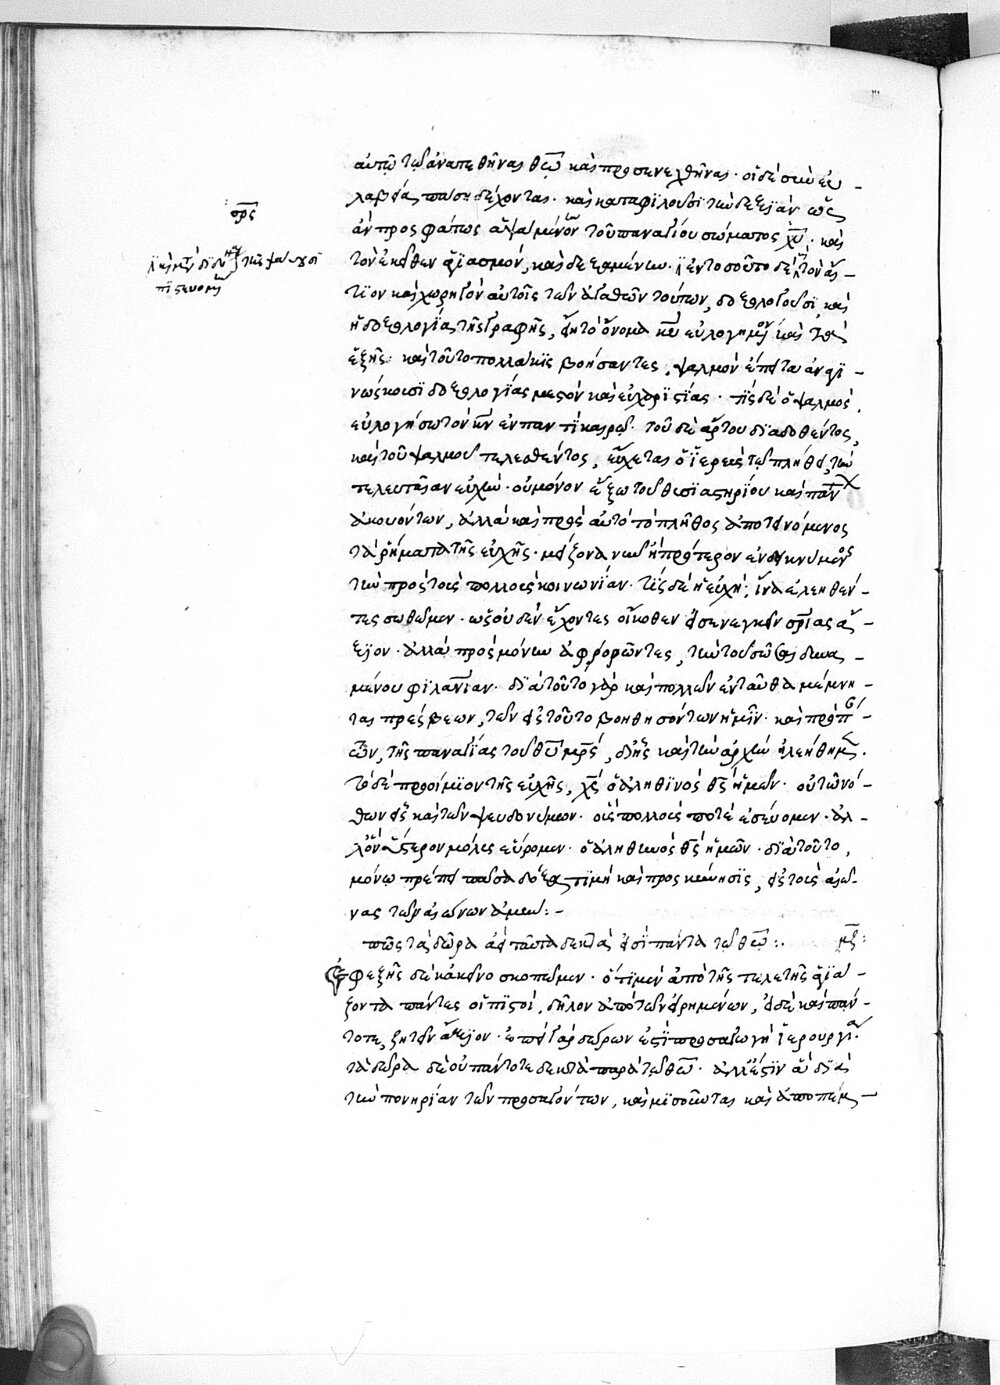 αὐτῷ τῷ ἀνατεθῆναι θεῷ καὶ προσενεχθῆναι· οἱ δὲ σὺν εὐ-
λαβείᾳ πάσῃ δέχονται· καὶ καταφιλοῦσι τὴν δεξιὰν ὡς
ἂν προσφάτως ἁψαμένην τοῦ παναγίου σώματος χυ· καὶ
τὸν ἐκεῖθεν ἁγιασμὸν, καὶ δεξαμένων. ἐν τοσούτῳ δὲ τὸν αἴ-
τιον καὶ χωρηγὸν αὐτοῖς τῶν ἀγαθῶν τούτων, δοξολογοῦσι, καὶ
ἡ δοξολογία τῆς γραφῆς, εἴη τὸ ὄνομα κυ εὐλογημένον καὶ τὰ
ἑξῆς· καὶ τοῦτο πολλάκις βοήσαντες, ψαλμὸν ἔπειτα ἀναγι-
νώσκουσι δοξολογίας μεστὸν καὶ εὐχαριστίας· τίς δὲ ὁ ψαλμός,
εὐλογήσω τὸν κν ἐν παντὶ καιρῷ· τοῦ δὲ ἄρτου διαδοθέντος,
καὶ τοῦ ψαλμοῦ τελεσθέντος, εὔχεται ὁ ἱερεὺς τῷ πλήθει, τὴν
τελευταίαν εὐχήν· οὐ μόνον ἔξω τοῦ θυσιαστηρίου καὶ πάντων
ἀκουόντων, ἀλλὰ καὶ πρὸς αὐτὸ τὸ πλῆθος ἀποτεινόμενος
τὰ ῥήματα τῆς εὐχῆς· μείζονα νῦν ἢ πρότερον ἐνδεικνύμενος
τὴν πρὸς τοὺς πολλοὺς κοινωνίαν· τίς δὲ ἡ εὐχή; ἵνα ἐλεηθέν-
τες σωθῶμεν· ὡς οὐδὲν ἔχοντες οἴκοθεν εἰσενεγκεῖν σρίας ἄ-
ξιον· ἀλλὰ πρὸς μόνην ἀφορῶντες, τὴν τοῦ σῶσαι δυνα-
μένου φιλανίαν· διὰ τοῦτο γὰρ καὶ πολλῶν ἐνταῦθα μέμνη-
ται πρέσβεων, τῶν εἰς τοῦτο βοηθησόντων ἡμῖν· καὶ πρὸ πάν-
των, τῆς παναγίας τοῦ θυ μρς, δι' ἧς καὶ τὴν ἀρχὴν ἠλεήθημεν.
τὸ δὲ προοίμιον τῆς εὐχῆς, χς ὁ ἀληθινὸς θς ἡμῶν· οὐ τῶν νό-
θων εἷς καὶ τῶν ψευδωνύμων· οὓς πολλοὺς ποτὲ ἐσεύομεν· ἀλ-
λ' ὃν ὕστερον μόλις εὕρομεν· ὁ ἀληθινὸς θς ἡμῶν· διὰ τοῦτο,
μόνῳ πρέπει πᾶσα δόξα τιμὴ καὶ προσκύνησις, εἰς τοὺς αἰῶ-
νας τῶν αἰώνων ἀμήν:-
πῶς τὰ δῶρα ἀεὶ ταῦτα δεκτὰ εἰσὶ πάντα τῷ θεῷ:. μζ:
Ἐφεξῆς δὲ κἀκεῖνο σκοπῶμεν· ὅτι μὲν ἀπὸ τῆς τελετῆς ἁγιά-
ζονται πάντες οἱ πιστοὶ, δῆλον ἀπὸ τῶν εἰρημένων, εἰ δὲ καὶ πάν-
τοτε, ζητεῖν ἄξιον· ἐπεὶ γὰρ δώρων ἐστὶ προσαγωγὴ ἡ ἱερουργία·
τὰ δῶρα δὲ οὐ πάντοτε δεκτὰ παρὰ τῷ θεῷ· ἀλλ' ἔστιν ἃ διὰ
τὴν πονηρίαν τῶν προσαγόντων, καὶ μισοῦνται καὶ ἀποπέμ-